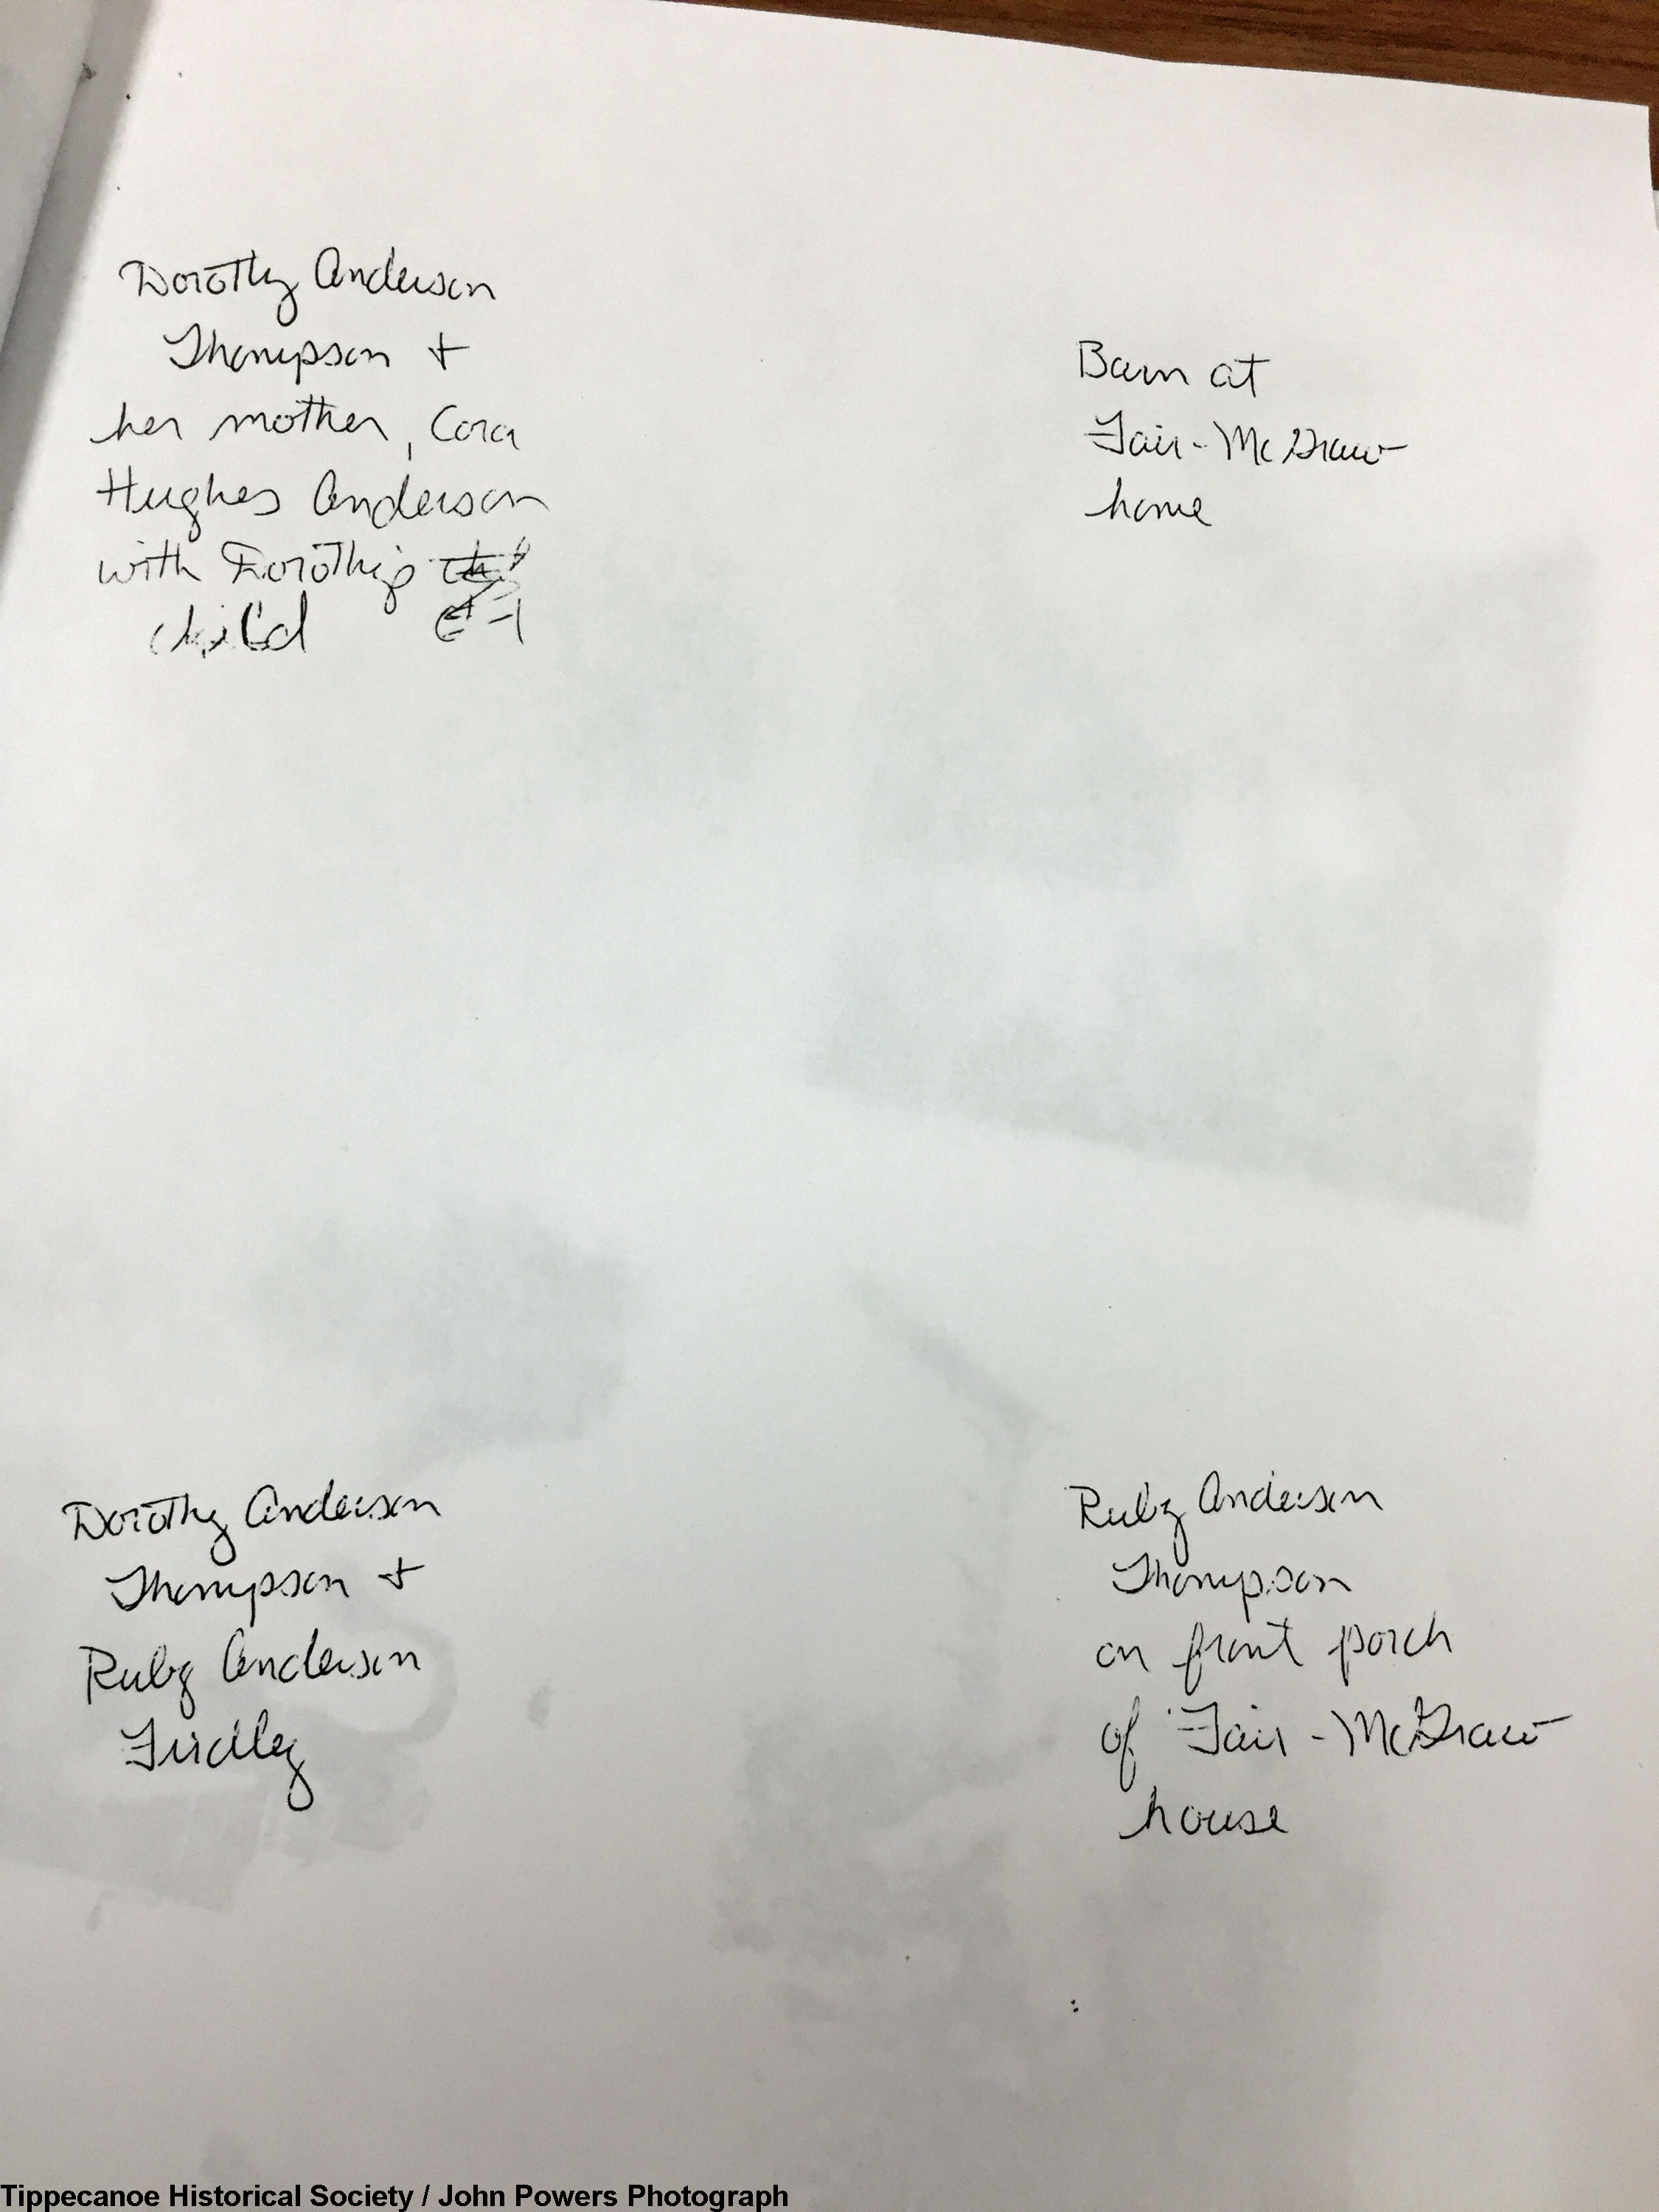 Dorothy Anderson
Thompson +
her mother, Cora
Hughes Anderson
with Dorothy
child
Barn at
Fair-McGraw
home
Dorothy Anderson
Thompson +
Ruby Anderson
Findley
Ruby Anderson
Thompson
on front porch
of Fair-McGraw
house
Tippecanoe Historical Society / John Powers Photograph